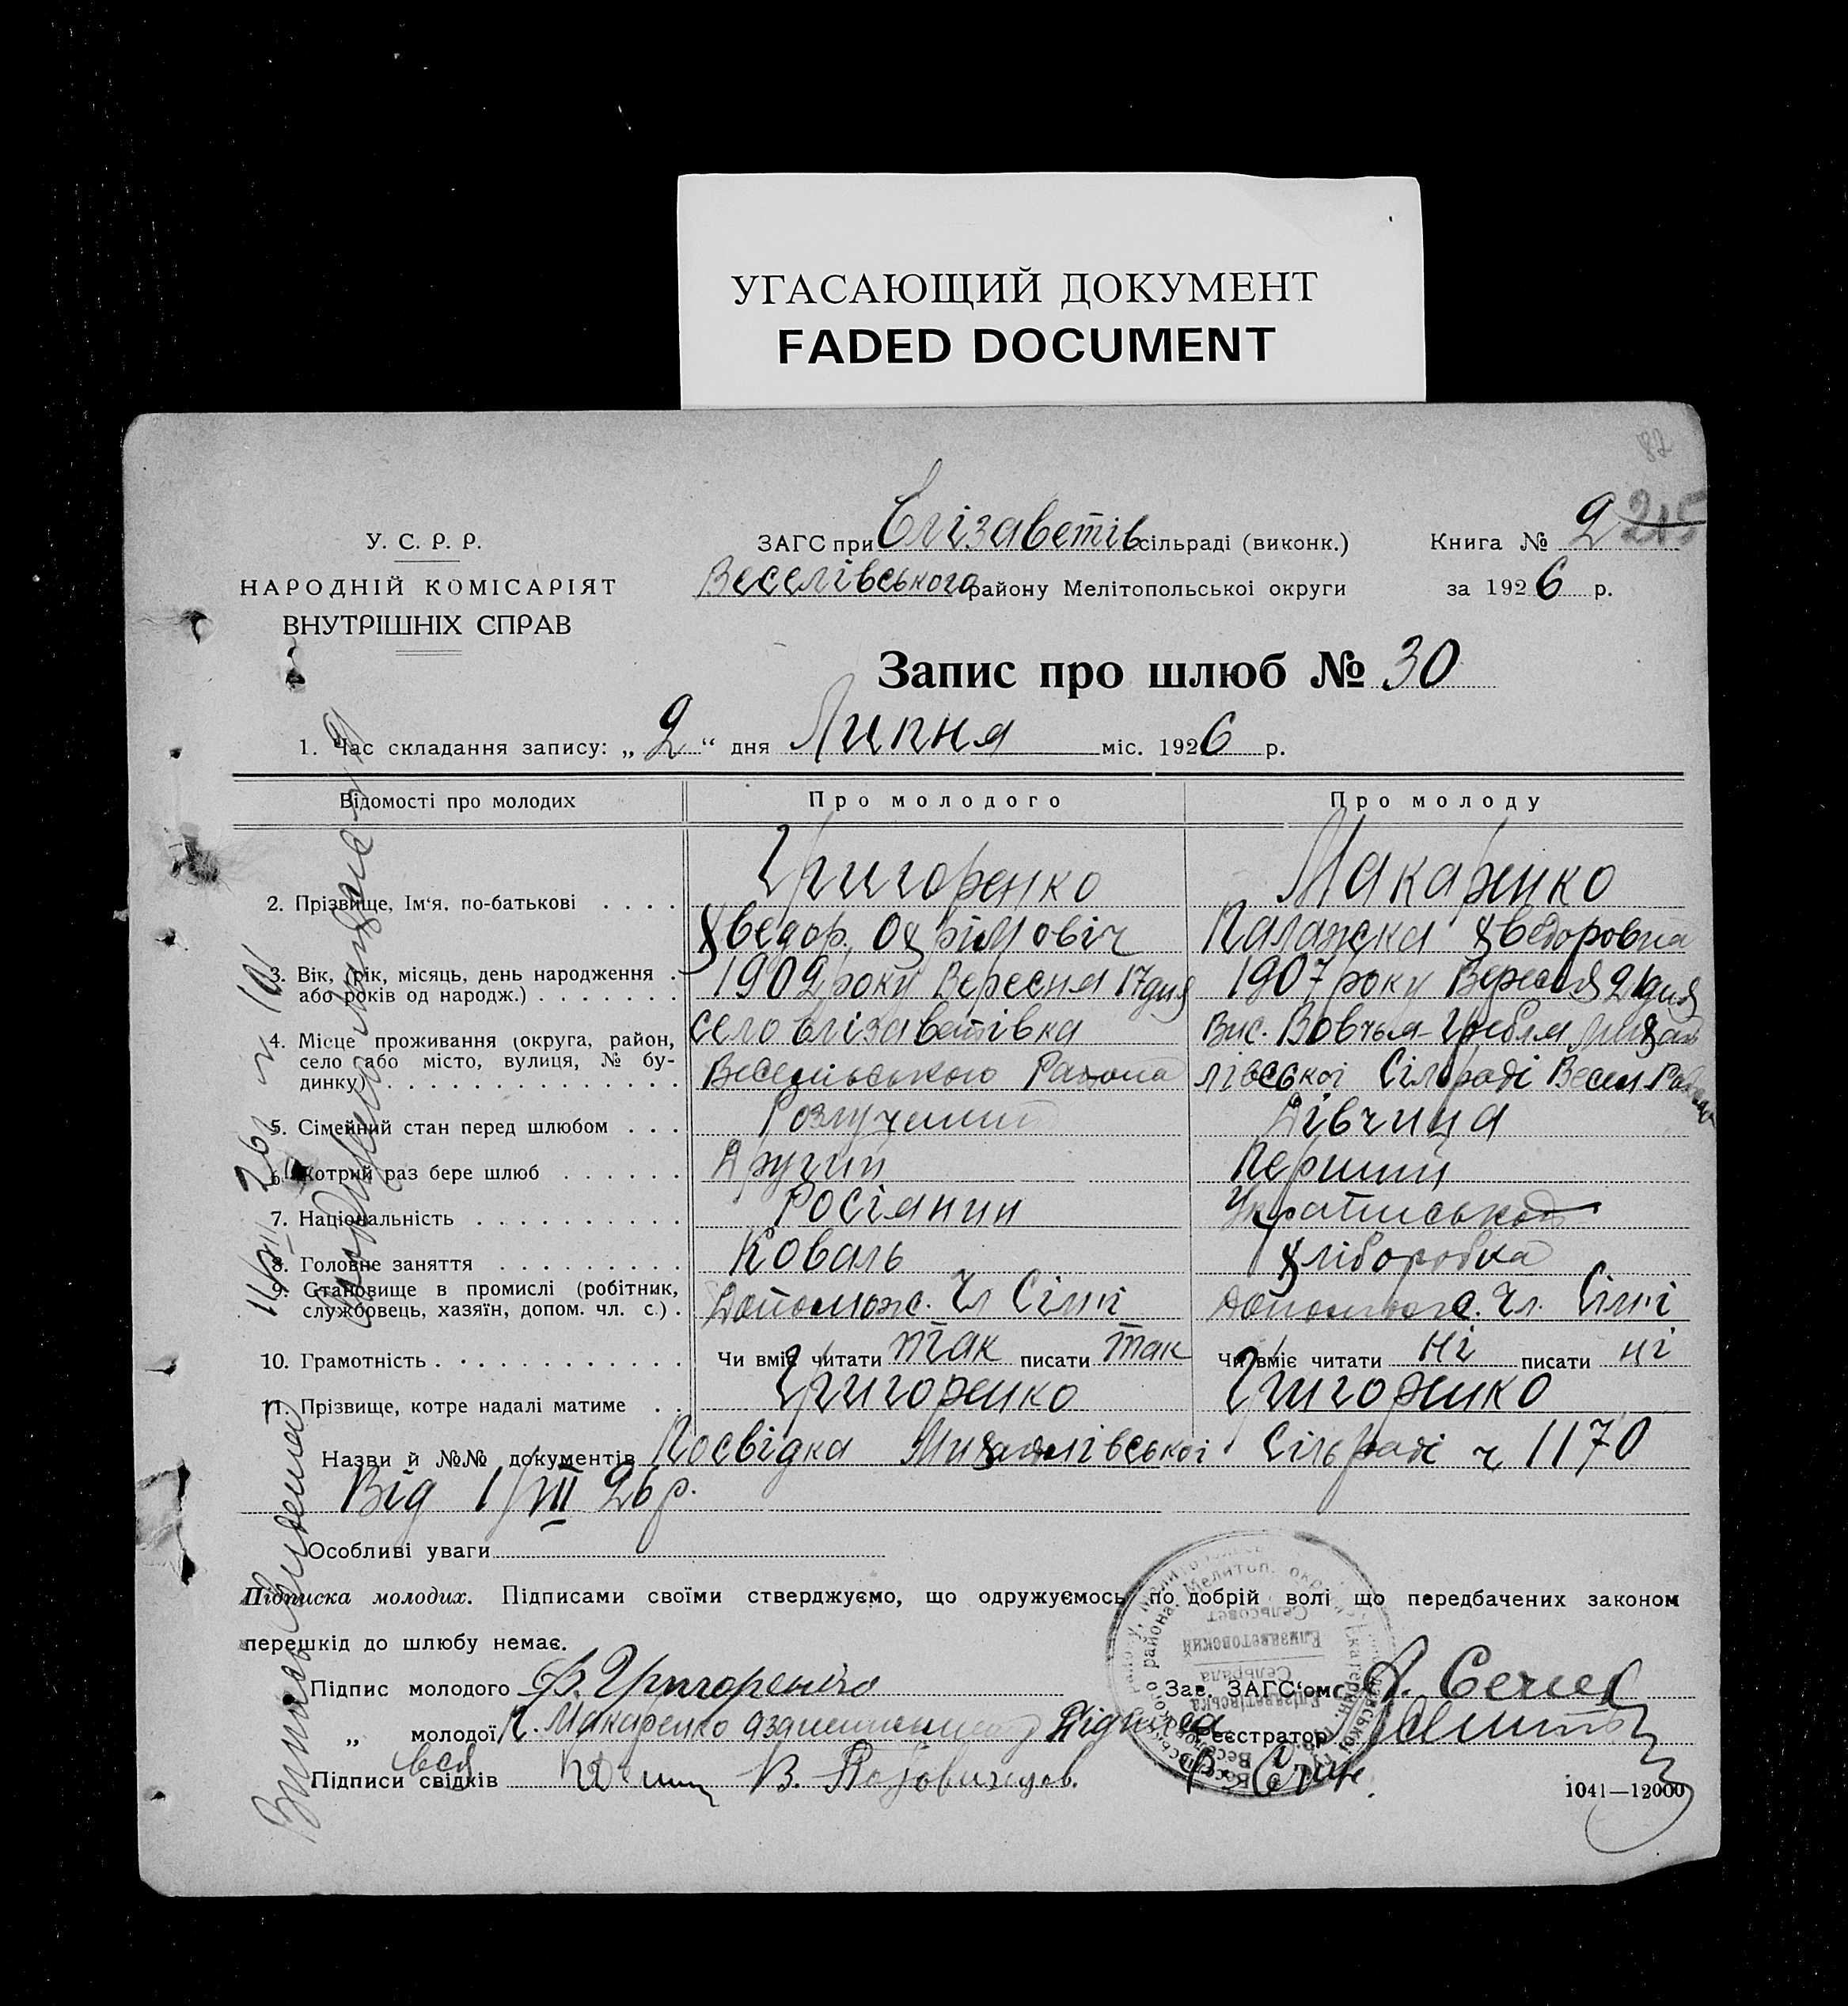 УГАСАЮЩИЙ ДОКУМЕНТ
FADED DOCUMENT
87
У. С. Р. Р.
НАРОДНІЙ КОМІСАРІЯТ
ВНУТРІШНІХ СПРАВ
ЗАГС при Єлізаветів сільраді (виконк.)
Веселівського району Мелітопольської округи
Книга № 2 215
за 1926 р.
Запис про шлюб № 30
1. Час складання запису: „ 2 “ дня Липня міс. 1926 р.
Відомості про молодих Про молодого Про молоду
2. Прізвище, Ім‘я. по-батькові . . . . Григоренко Макаренко
Хведор. Охрімовіч Палажка Хведоровна
3. Вік, (рік, місяць, день народження . або років од народж.) . . . . . . . 1902 року Вересня 17 дня 1907 року Вересня 21 дня
4. Місце проживання (округа, район, село або місто, вулиця, № будинку) . . . село Єлізаветівка Вис. Вовчья Гребля Михай
Веселівського Района лівської Сільраді Весел. Района
5. Сімейний стан перед шлюбом . . . Розлучений Дівчина
6. Котрий раз бере шлюб . . . . . . Другий Перший
7. Національність . . . . . . . . . . Росіянин Українська
8. Головне заняття . . . . . . . . . Коваль Хліборобка
9. Становище в промислі (робітник, службовець, хазяїн, допом. чл. с.) . Допомож. Чл Сімї Допомож. Чл. Сімї
10. Грамотність . . . . . . . . . . . Чи вміє читати так писати так Чи вміє читати ні писати ні
11. Прізвище, котре надалі матиме . . Григоренко Григоренко
Назви й №№ документів Посвідка Михайлівської Сільраді ч 1170
Від 1/VII 26 р.
Особливі уваги
Підписка молодих. Підписами своїми стверджуємо, що одружуємось по добрій волі що передбачених законом
перешкід до шлюбу немає.
Підпис молодого Ф. Григоренко Зав. ЗАГС‘ом
„ молодої П. Макаренко Реєстратор
Підписи свідків В.
1041—12000
Сельсовет
Елизаветовский
Сельрада
Елізаветівська